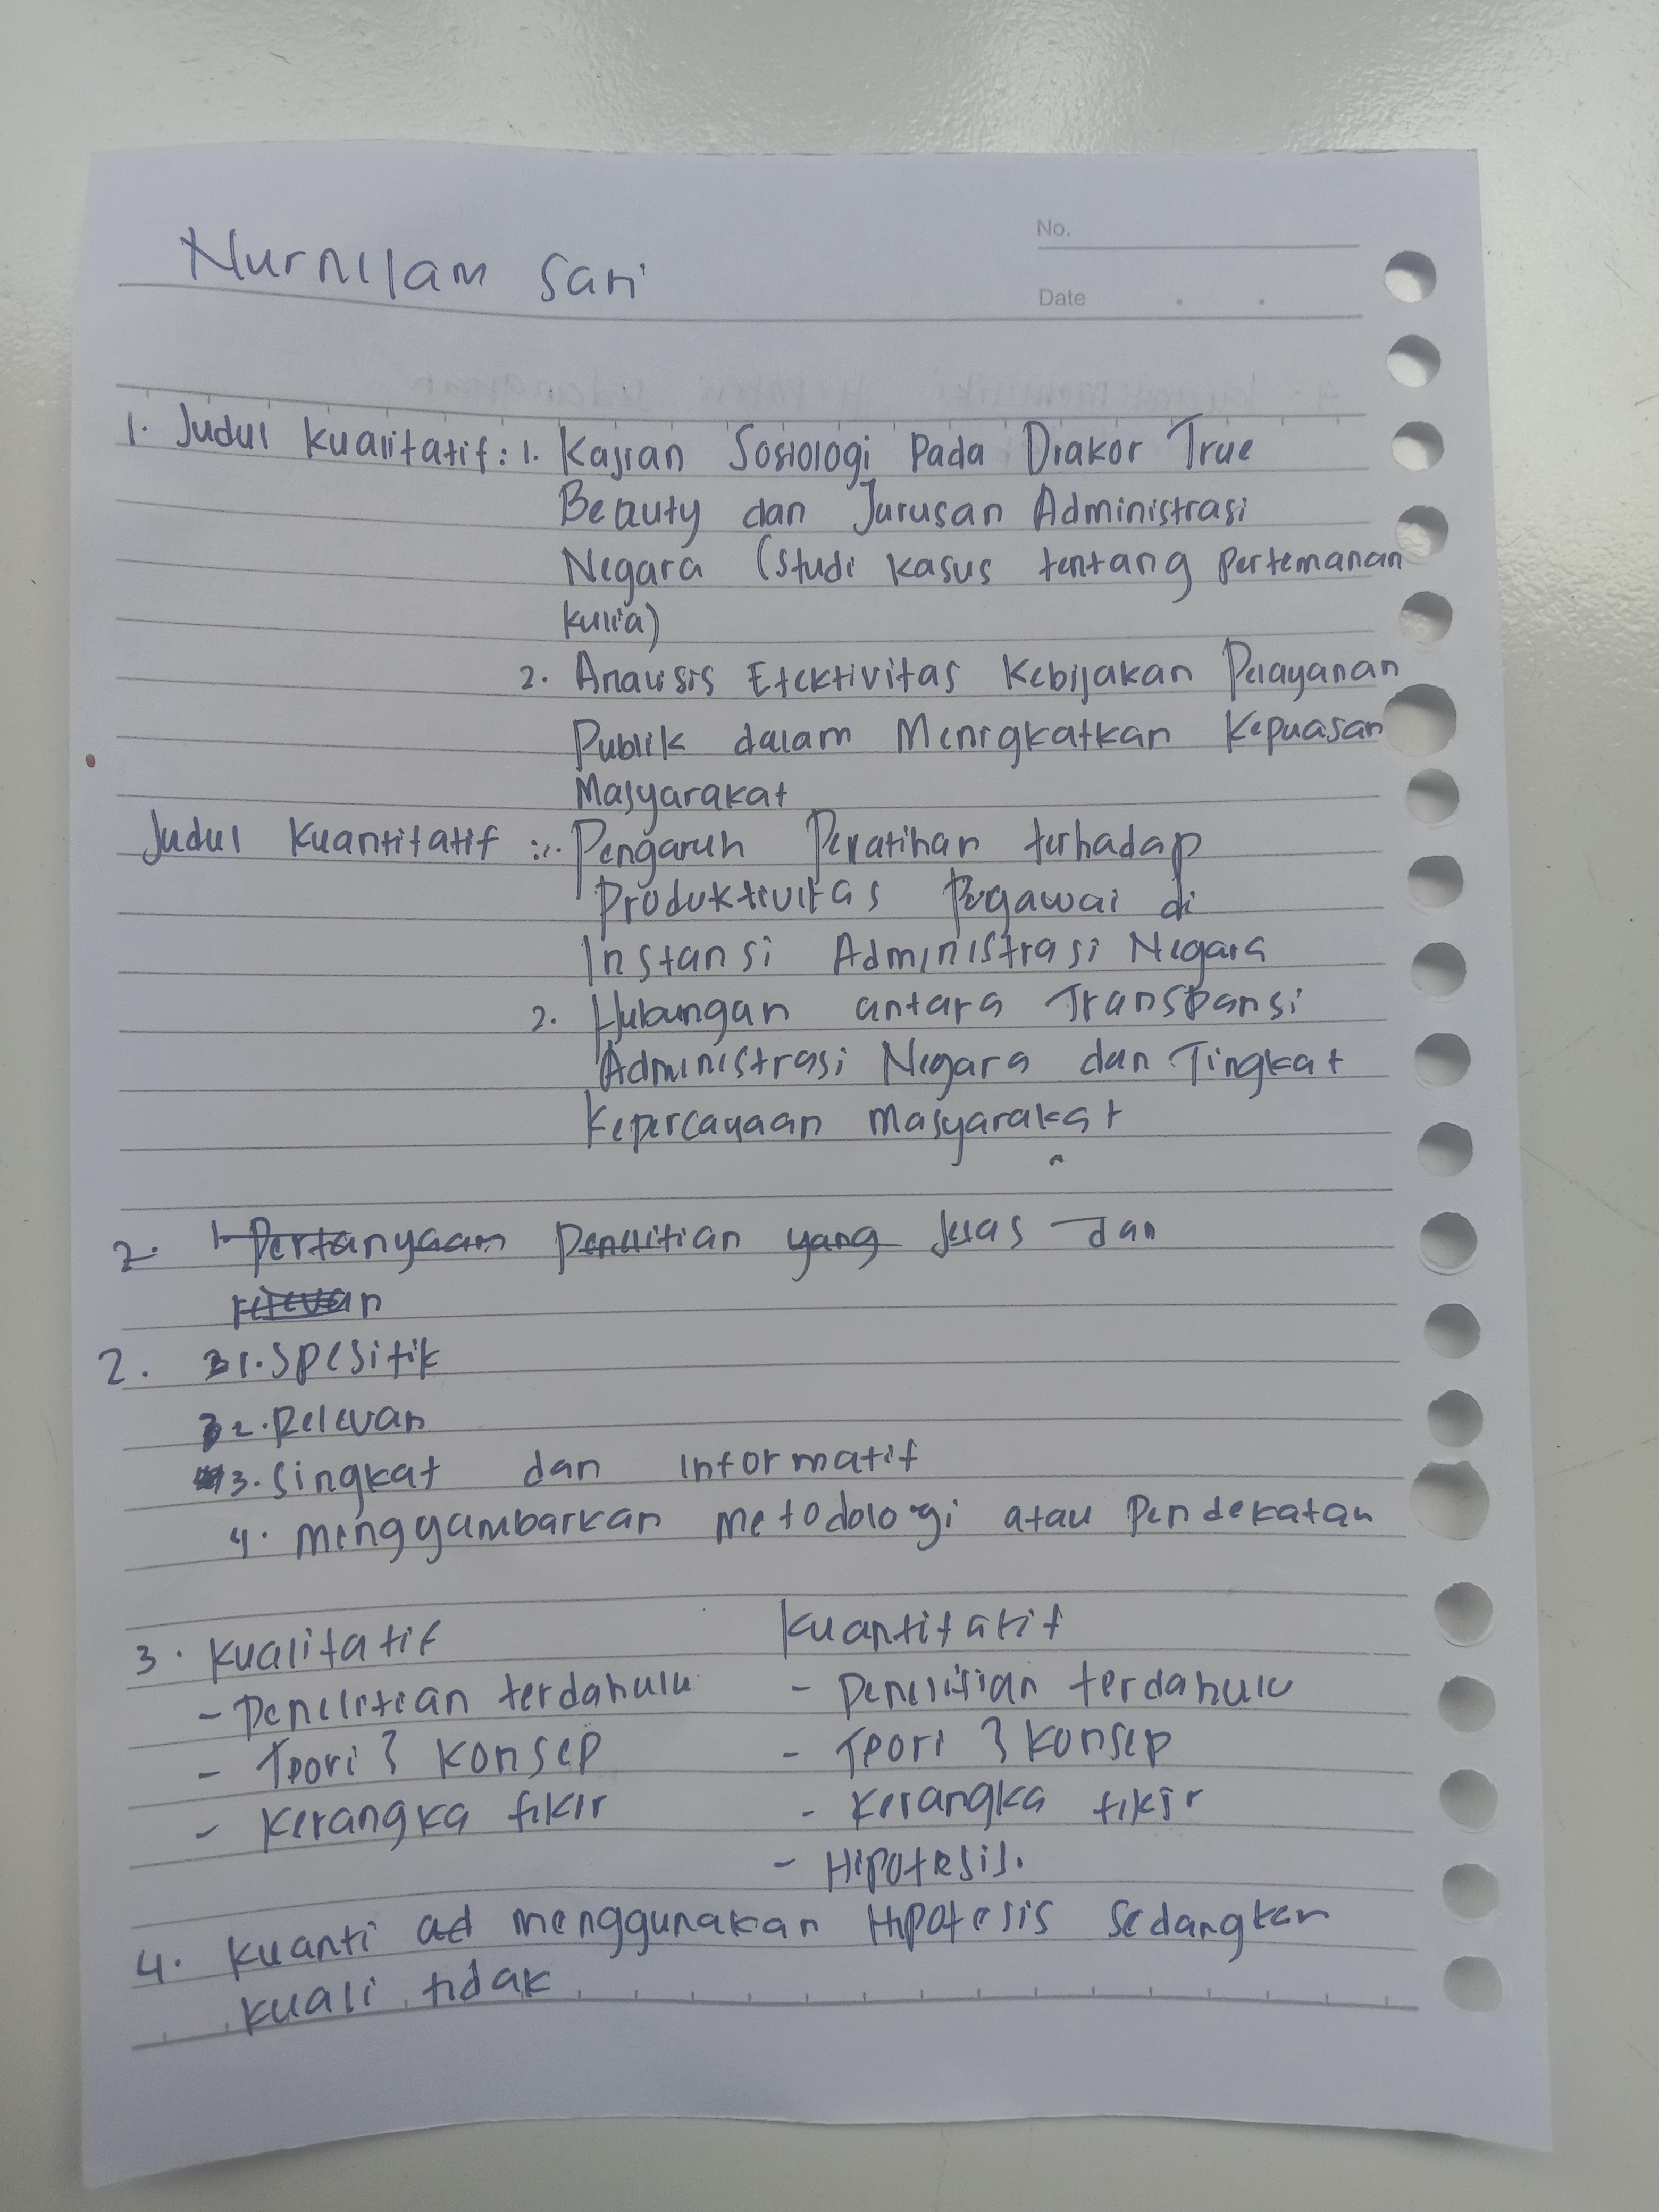 Nurnilam Sari
No.
Date
1. Judul Kualitatif : 1. Kajian Sosiologi Pada Drakor True
Beauty dan Jurusan Administrasi
Negara (Studi kasus tentang pertemanan
kulia)
2. Analisis Efektivitas Kebijakan Pelayanan
Publik dalam Menigkatkan Kepuasan
Masyarakat
Judul Kuantitatif : 1. Pengaruh Pelatihan terhadap
Produktivitas Pegawai di
Instansi Administrasi Negara
2. Hubungan antara Transpansi
Administrasi Negara dan Tingkat
Kepercayaan Masyarakat
2. 1. Pertanyaam Penelitian yang Jelas dan
relevan
2. 1. Spesifik
2. Relevan
3. Singkat dan Informatif
4. menggambarkan metodologi atau Pendekatan
3. Kualitatif Kuantitatif
- Penelitian terdahulu - Penelitian terdahulu
- Teori & Konsep - Teori & Konsep
- Kerangka fikir - Kerangka fikir
- Hipotesis.
4. Kuanti ad menggunakan Hipotesis Sedangkan
Kuali tidak